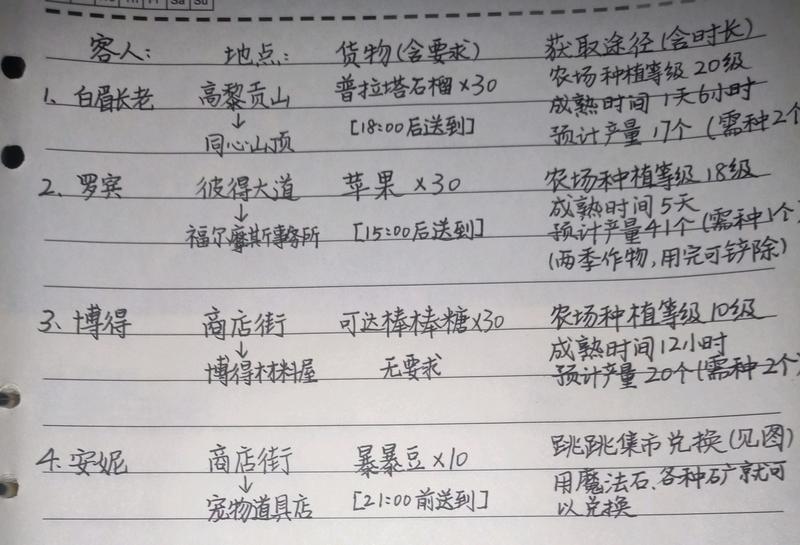 Th Fr Sa Su
客人: 地点: 货物(含要求) 获取途径(含时长)
1、白眉长老 高黎贡山 普拉塔石榴×30 农场种植等级20级
↓ 成熟时间1天6小时
同心山顶 [18:00后送到] 预计产量17个(需种2个
2、罗宾 彼得大道 苹果×30 农场种植等级18级
↓ 成熟时间5天
福尔摩斯事务所 [15:00后送到] 预计产量41个(需种1个)
(两季作物,用完可铲除)
3、博得 商店街 可达棒棒糖×30 农场种植等级10级
↓ 成熟时间12小时
博得材料屋 无要求 预计产量20个(需种2个)
4、安妮 商店街 暴暴豆×10 跳跳集市兑换(见图)
↓ 用魔法石、各种矿就可
宠物道具店 [21:00前送到] 以兑换